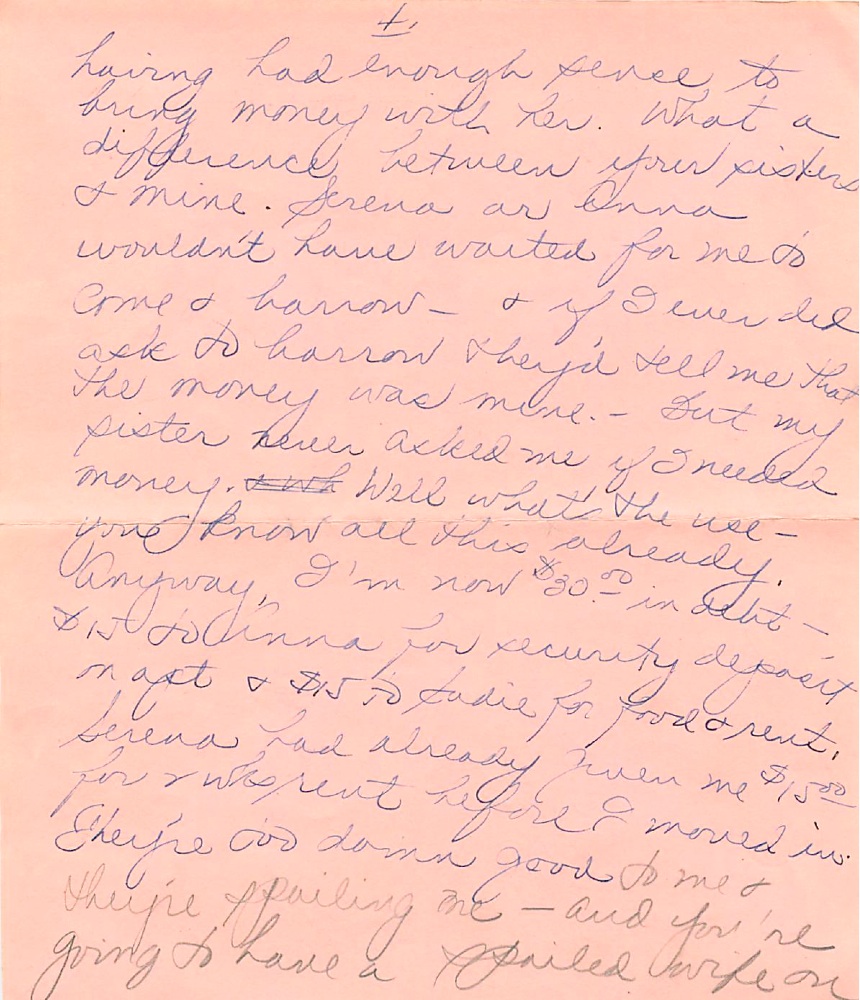 4.
having had enough sense to
bring money with her. What a
difference between your sisters
& mine. Serena or Anna
wouldn't have waited for me to
come & borrow — & if I ever did
ask to borrow they'd tell me that
the money was mine. — But my
sister never asked me if I needed
money. & wh Well what's the use —
you know all this already.
Anyway, I'm now $30.00 in debt —
$15 to Anna for security deposit
on apt & $15 to Sadie for food & rent.
Serena had already given me $15.00
for 2 wks rent before I moved in.
They're too damn good to me &
they're spoiling me — and you're
going to have a spoiled wife on